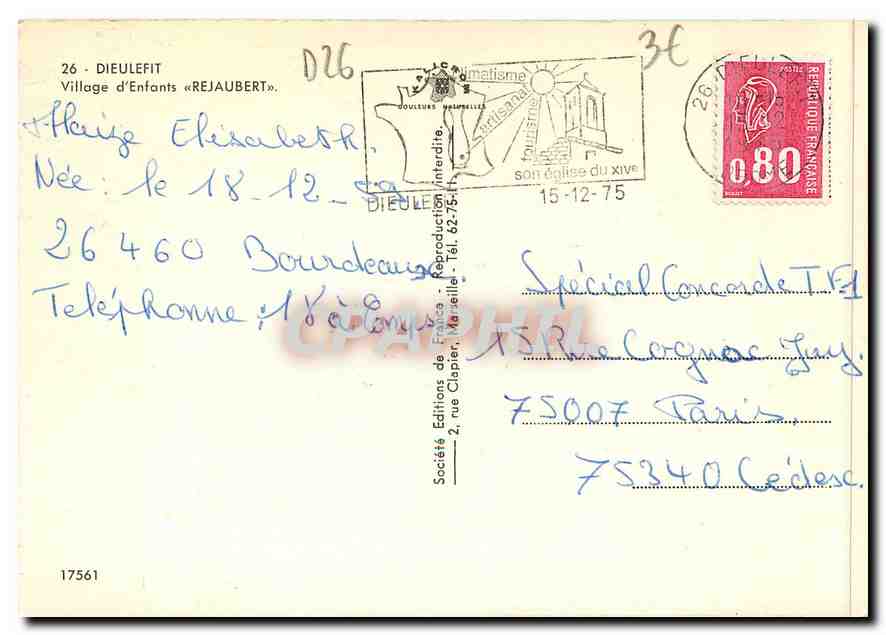 D26
3€
26 - DIEULEFIT
Village d'Enfants «REJAUBERT».
KALICROM
DOULEURS NATURELLES
climatisme
artisanat
tourisme
son église du XIVe
DIEULEF
15-12-75
26 DIEUL
POSTES
REPUBLIQUE FRANÇAISE
0,80
Elisabeth.
Née: le 18-12-59.
26460 Bourdeaux.
Teléphonne: 18 à
Société Editions de France - Reproduction interdite.
2, rue Clapier, Marseille - Tél. 62-75-11
Spécial Concorde TF1
15 Rue Cognac Jay.
75007 Paris.
75340 Cédesc.
CPAPHIL
17561